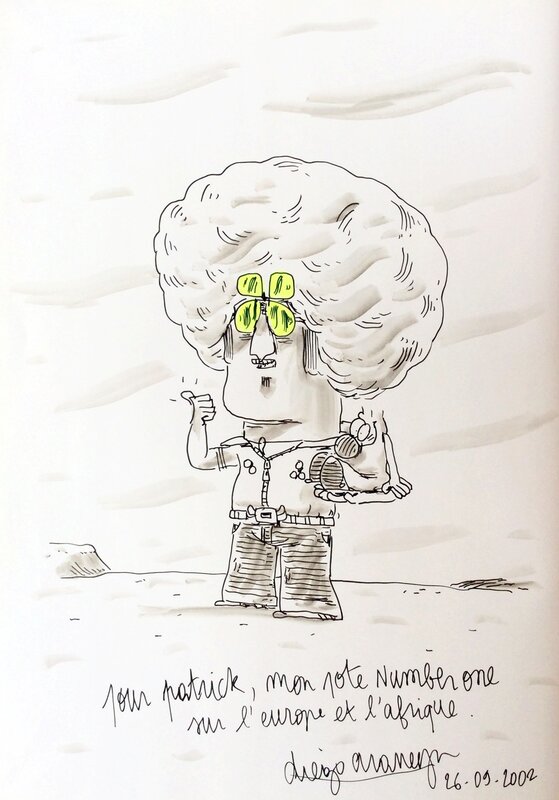 pour patrick, mon pote Number one
sur l'europe et l'afrique.
diego aranega
26.09.2002